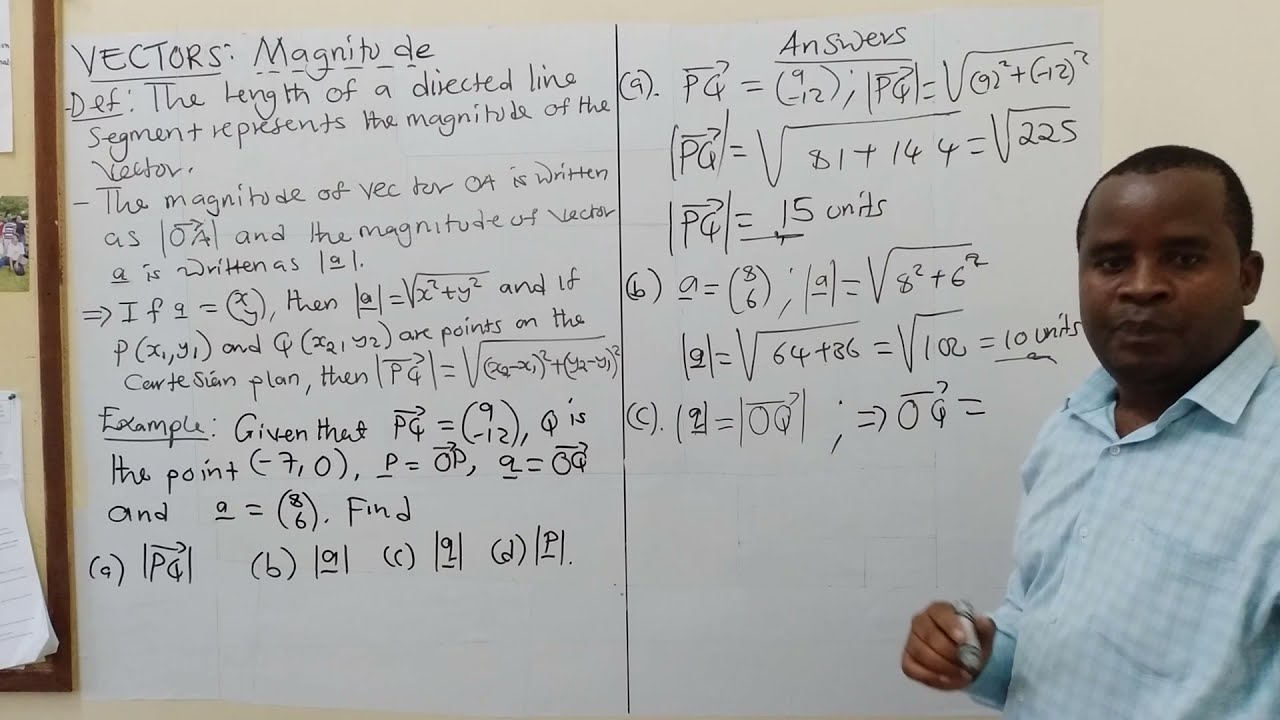 VECTORS: Magnitude
-Def: The length of a directed line
segment represents the magnitude of the
vector.
- The magnitude of vector OA is written
as |\overrightarrow{OA}| and the magnitude of vector
a is written as |a|.
⇒ If a = (x y), then |a| = √x²+y² and if
P(x₁,y₁) and Q(x₂,y₂) are points on the
Cartesian plan, then |\overrightarrow{PQ}| = √(x₂-x₁)²+(y₂-y₁)²
Example: Given that \overrightarrow{PQ} = (9 -12), Q is
the point (-7, 0), p = \overrightarrow{OP}, q = \overrightarrow{OQ}
and a = (8 6). Find
(a) |\overrightarrow{PQ}| (b) |a| (c) |q| (d) |p|.
Answers
(a). \overrightarrow{PQ} = (9 -12); |\overrightarrow{PQ}| = √(9)²+(-12)²
|\overrightarrow{PQ}| = √81+144 = √225
|\overrightarrow{PQ}| = 15 units
(b) a = (8 6); |a| = √8²+6²
|a| = √64+36 = √100 = 10 units
(c). |q| = |\overrightarrow{OQ}| ; ⇒ \overrightarrow{OQ} =